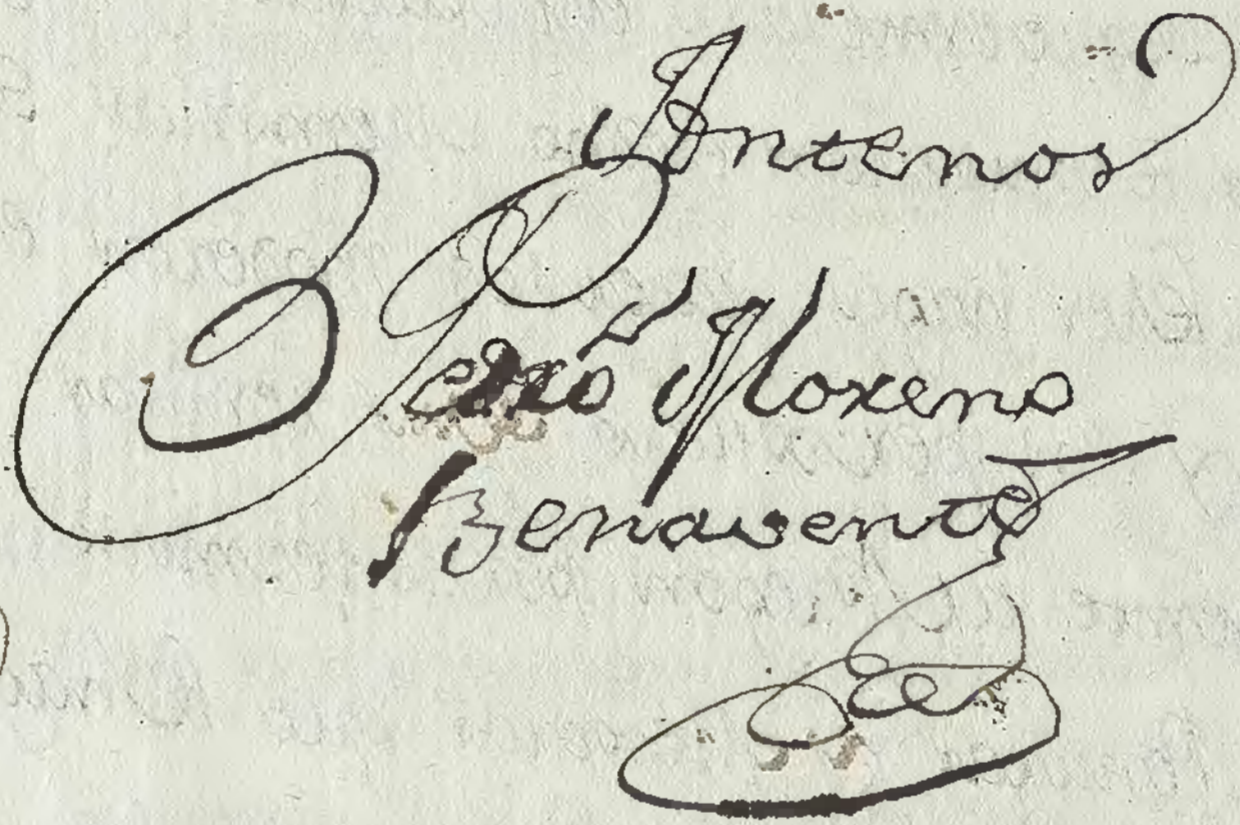 Antemos
Pedro Moreno
Benavente